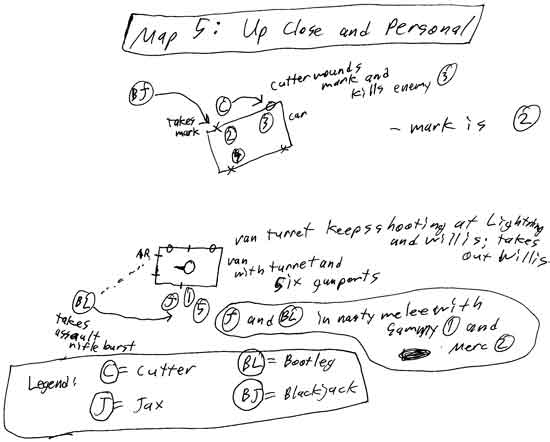 Map 5: Up Close and Personal
BJ
C
cutter wounds
mark and
kills enemy 3
takes
mark
2
3
car
4
- mark is 2
van turret keeps shooting at Lightning
and Willis; takes
out Willis.
AR
van
with turret and
six gunports
BL
J
1
5
takes
assault
rifle burst
J and BL in nasty melee with
Gammy 1 and
Merc 2
Legend:
C = Cutter
BL = Bootleg
J = Jax
BJ = Blackjack